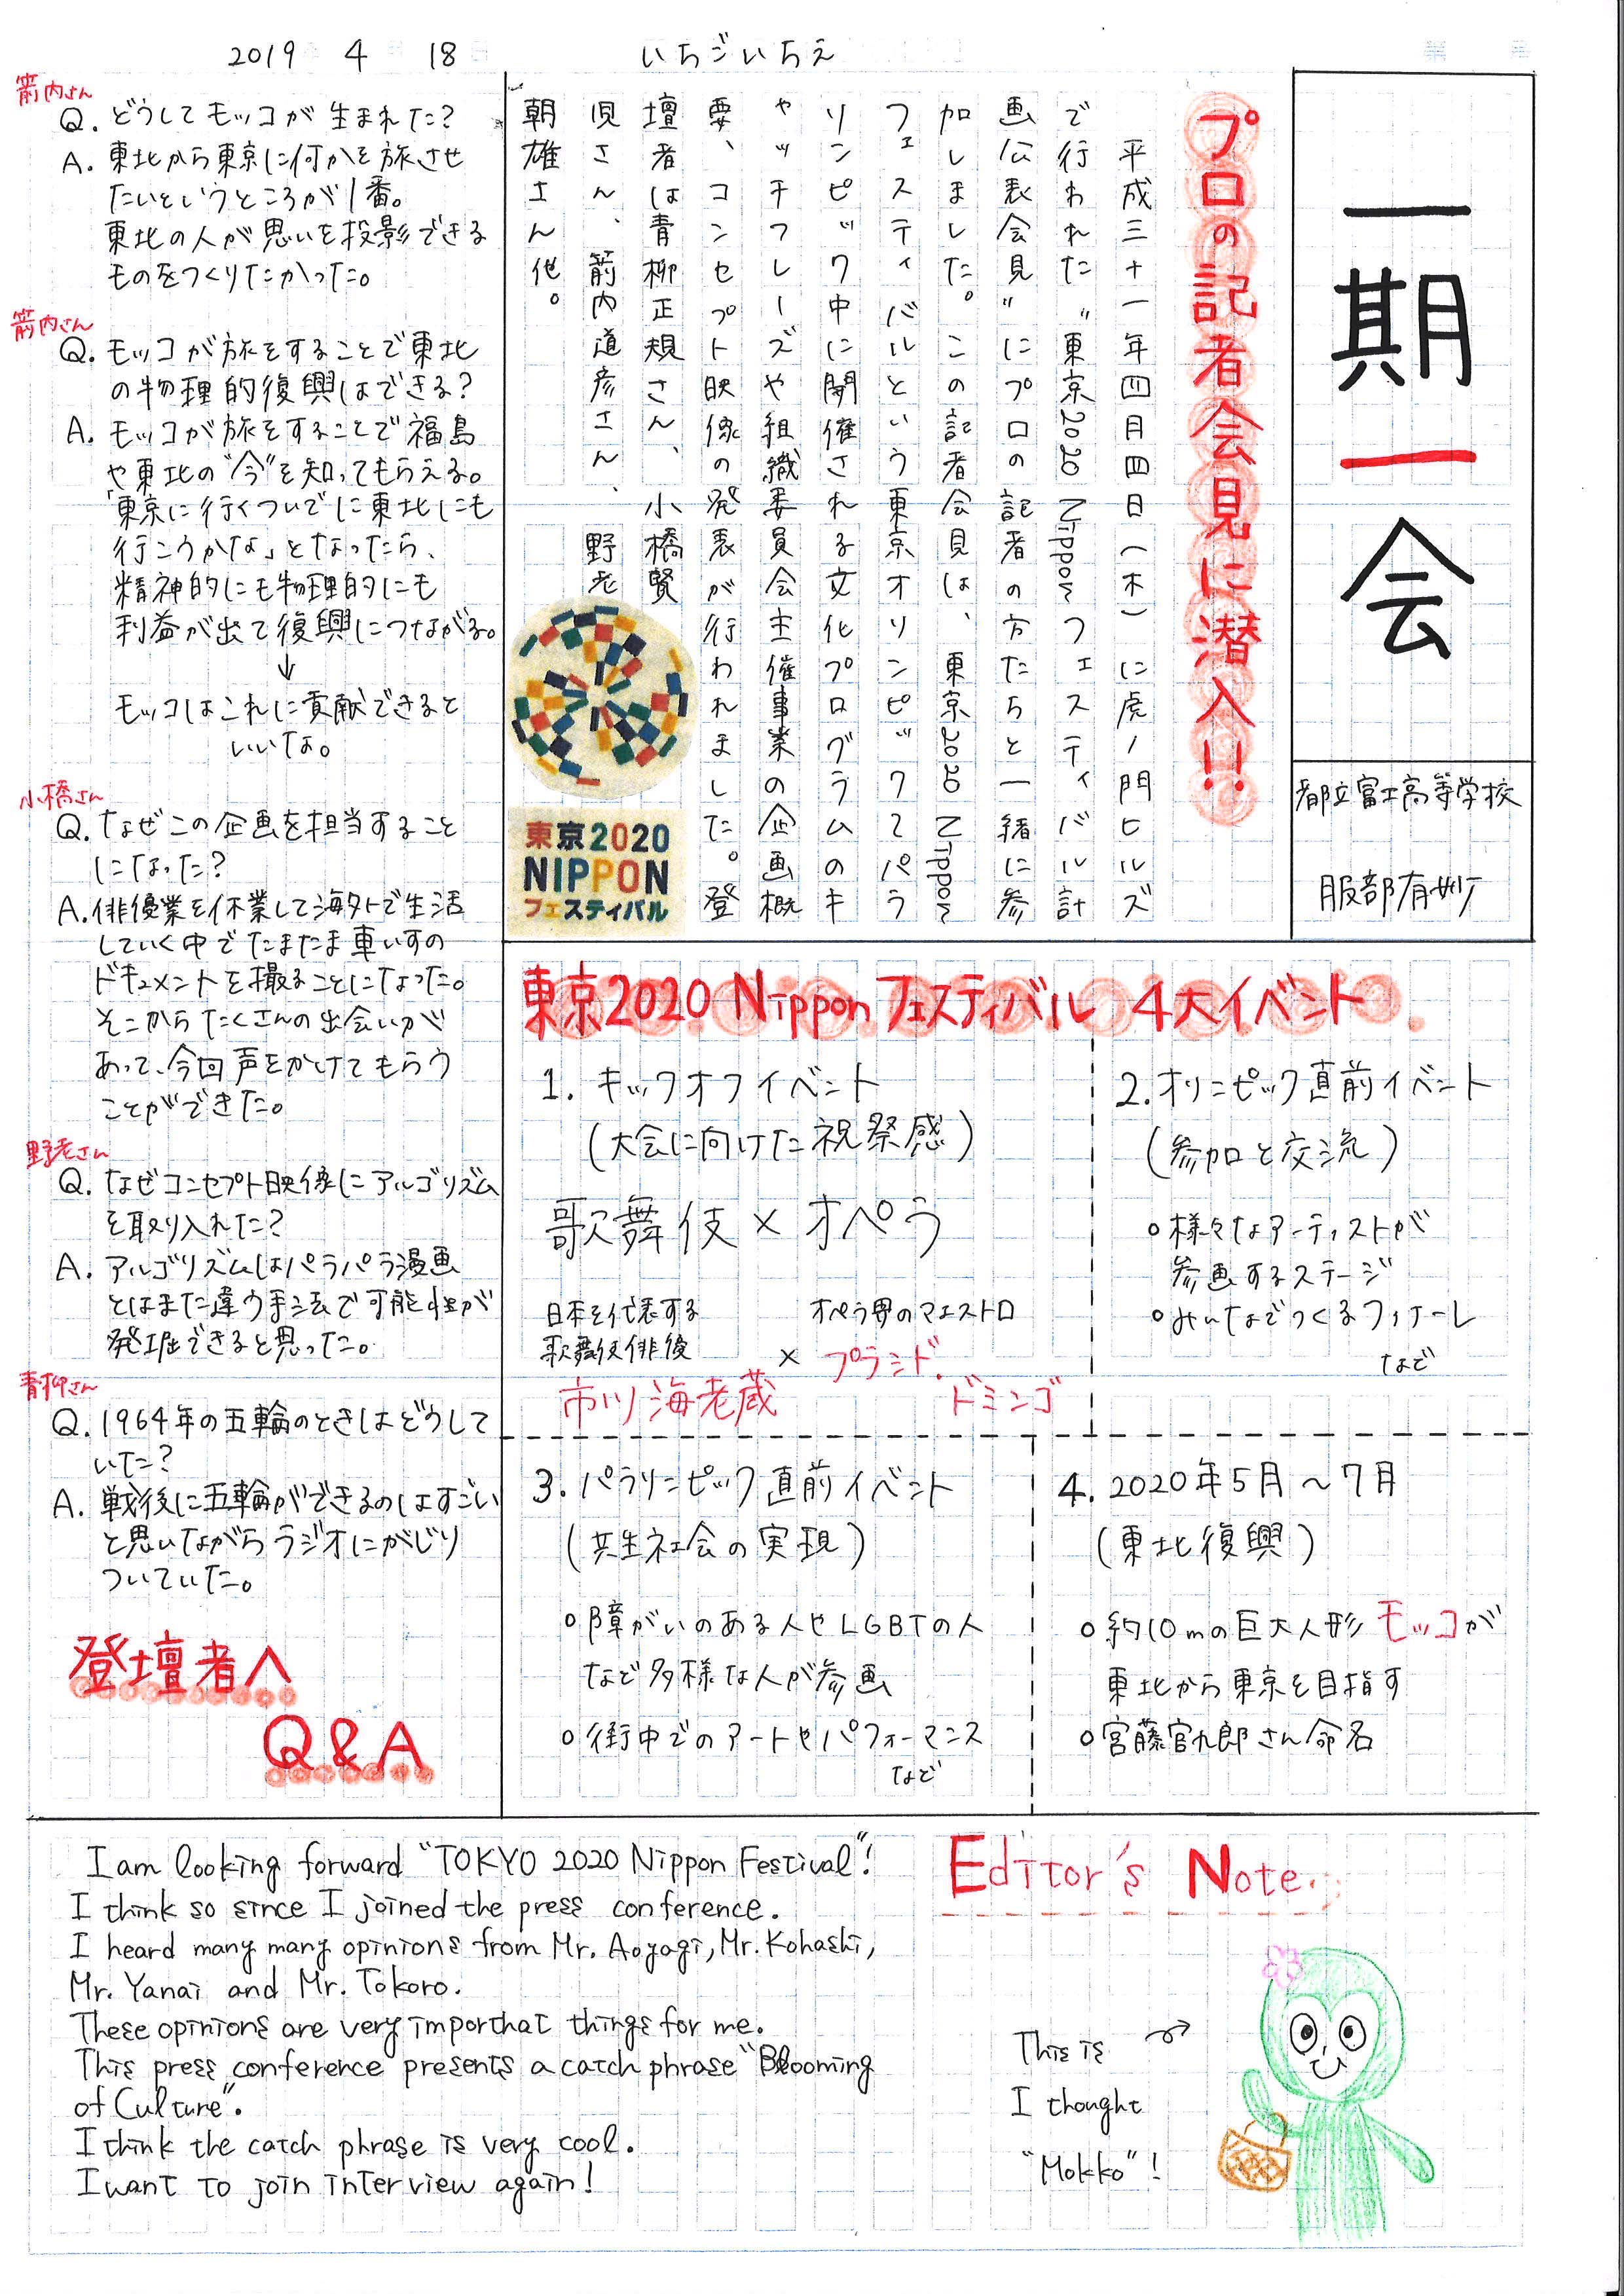 2019 4 18
いちごいちえ
一期一会
都立富士高等学校
服部有紗
プロの記者会見に潜入!!
平成三十一年四月四日(木)に虎ノ門ヒルズ
で行われた〝東京2020 Nippon フェスティバル計
画公表会見〟にプロの記者の方たちと一緒に参
加しました。この記者会見は、東京2020 Nippon
フェスティバルという東京オリンピックとパラ
リンピック中に開催される文化プログラムのキ
ャッチフレーズや組織委員会主催事業の企画概
要、コンセプト映像の発表が行われました。登
壇者は青柳正規さん、小橋賢
児さん、箭内道彦さん、野老
朝雄さん他。
東京2020
NIPPON
フェスティバル
箭内さん
Q. どうしてモッコが生まれた?
A. 東北から東京に何かを旅させ
たいというところが1番。
東北の人が思いを投影できる
ものをつくりたかった。
箭内さん
Q. モッコが旅をすることで東北
の物理的復興はできる?
A. モッコが旅をすることで福島
や東北の“今”を知ってもらえる。
「東京に行くついでに東北にも
行こうかな」となったら、
精神的にも物理的にも
利益が出て復興につながる。
↓
モッコはこれに貢献できると
いいな。
小橋さん
Q. なぜこの企画を担当すること
になった?
A. 俳優業を休業して海外で生活
していく中でたまたま車いすの
ドキュメントを撮ることになった。
そこからたくさんの出会いが
あって、今回声をかけてもらう
ことができた。
野老さん
Q. なぜコンセプト映像にアルゴリズム
を取り入れた?
A. アルゴリズムはパラパラ漫画
とはまた違う手法で可能性が
発掘できると思った。
青柳さん
Q. 1964年の五輪のときはどうして
いた?
A. 戦後に五輪ができるのはすごい
と思いながらラジオにかじり
ついていた。
登壇者へ
Q&A
東京2020 Nippon フェスティバル 4大イベント
1. キックオフイベント
(大会に向けた祝祭感)
歌舞伎×オペラ
日本を代表する
歌舞伎俳優
市川海老蔵
×
オペラ界のマエストロ
プラシド・
ドミンゴ
2. オリンピック直前イベント
(参加と交流)
○様々なアーティストが
参画するステージ
○みんなでつくるフィナーレ
など
3. パラリンピック直前イベント
(共生社会の実現)
○障がいのある人やLGBTの人
など多様な人が参画
○街中でのアートやパフォーマンス
など
4. 2020年5月〜7月
(東北復興)
○約10mの巨大人形モッコが
東北から東京を目指す
○宮藤官九郎さん命名
Editor's Note.
I am looking forward “TOKYO 2020 Nippon Festival”!
I think so since I joined the press conference.
I heard many many opinions from Mr. Aoyagi, Mr. Kohashi,
Mr. Yanai and Mr. Tokoro.
These opinions are very importhat things for me.
This press conference presents a catch phrase “Blooming
of Culture”.
I think the catch phrase is very cool.
I want to join interview again!
This is
I thonght
“Mokko”!